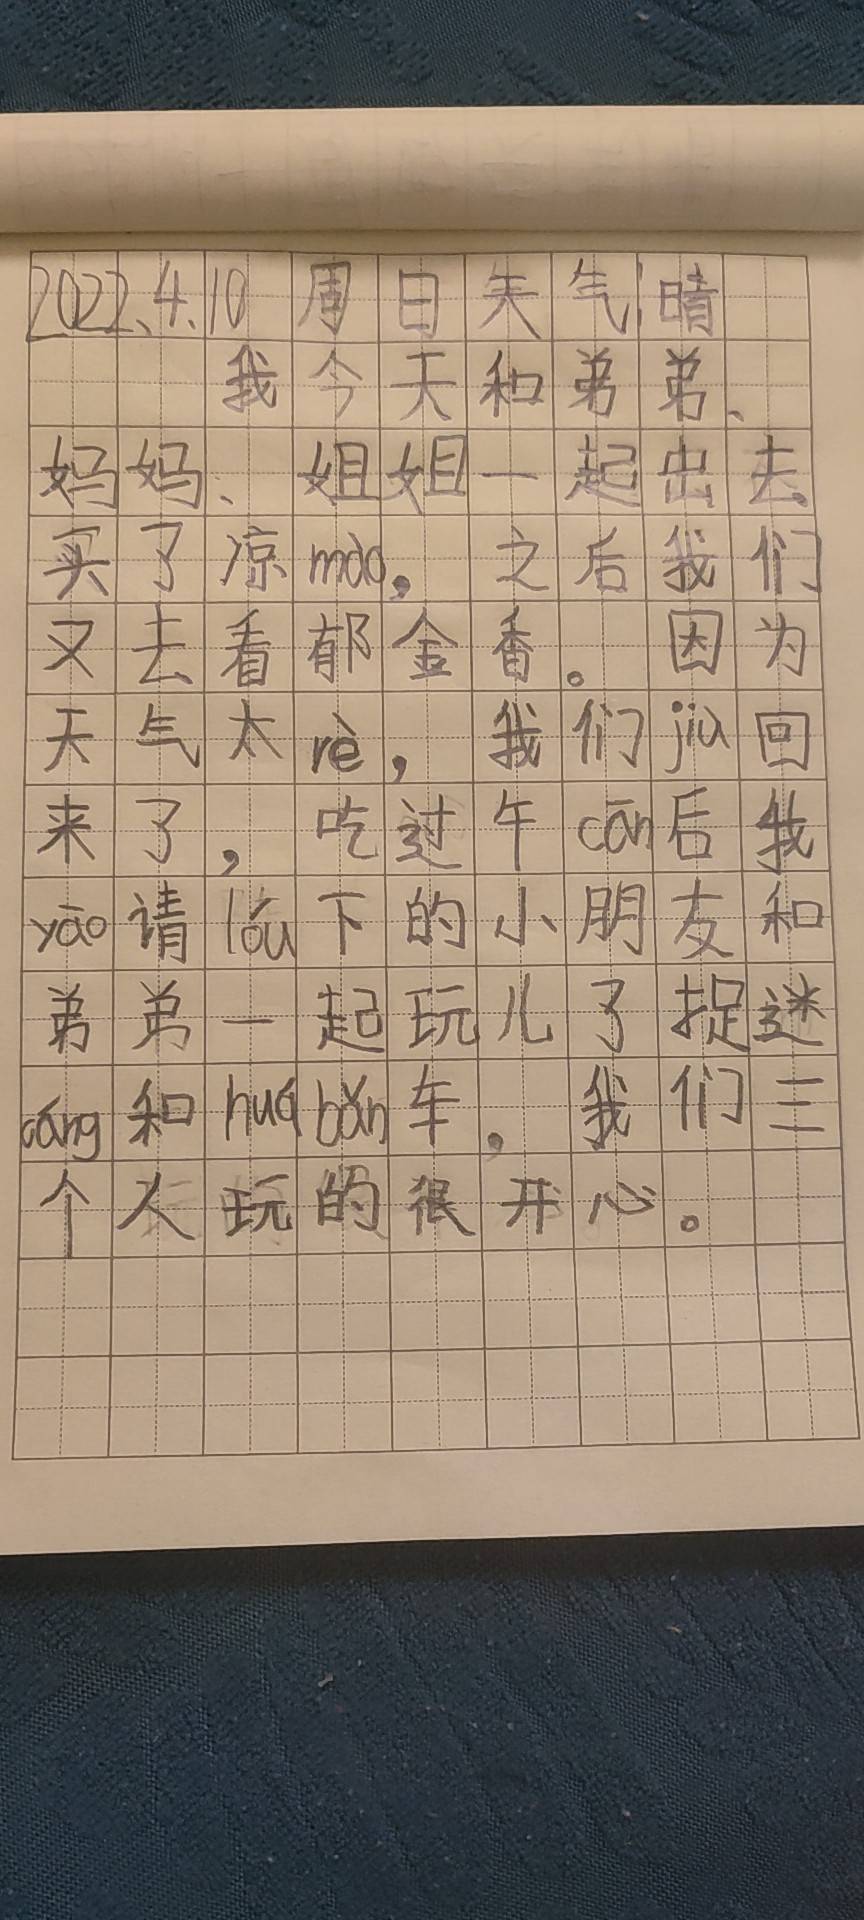 2022.4.10 周日天气晴
我今天和弟弟、
妈妈、姐姐一起出去
买了凉mào，之后我们
又去看郁金香。因为
天气太rè，我们jiu回
来了，吃过午cān后我
yāo请lóu下的小朋友和
弟弟一起玩儿了捉迷
cáng和huábǎn车，我们三
个人玩的很开心。